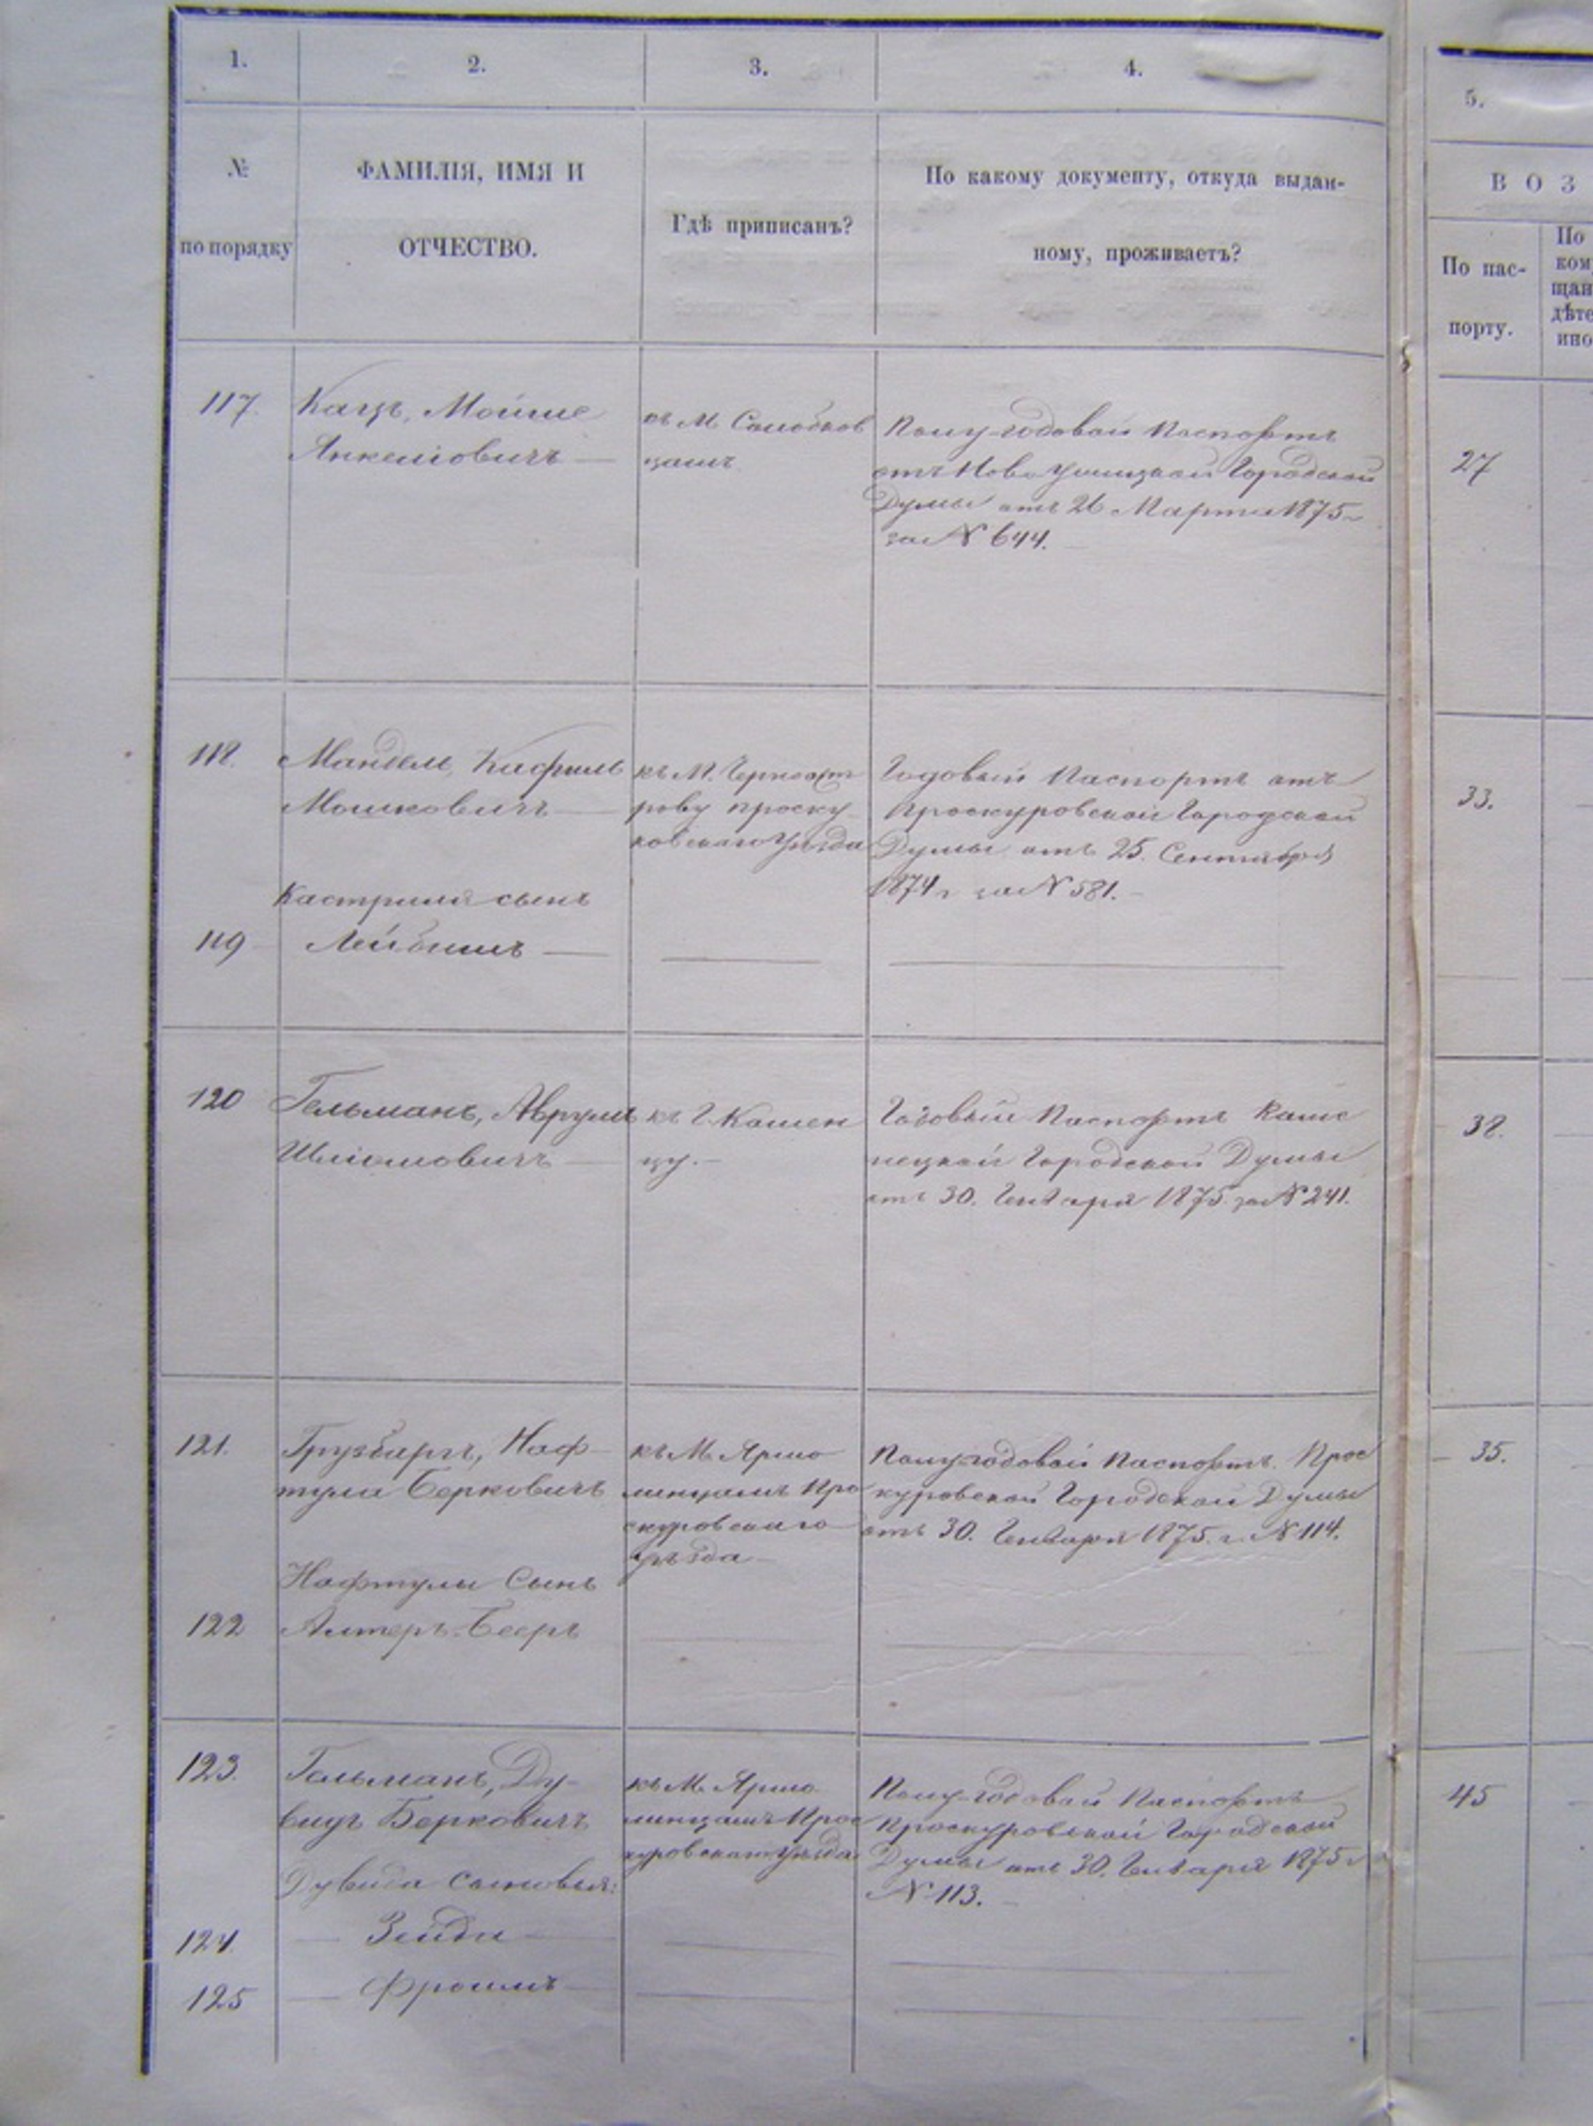 1.
2.
3.
4.
5.
№
по порядку
ФАМИЛІЯ, ИМЯ И
ОТЧЕСТВО.
Гдѣ приписанъ?
По какому документу, откуда выдан-
ному, проживаетъ?
ВОЗ
По пас-
порту.
По
ком
щан
дѣте
ино
117.
Кацъ, Мойше
Янкеліовичъ
къ М.
Полугодовой Паспортъ
отъ Ново Ушицкой Городской
Думы отъ 26 Марта 1875 г
за № 644.
27
118.
Мандель,
Мошковичъ
къ М. Черноост
рову проску
ровскаго уѣзда
Годовый Паспортъ отъ
Проскуровской Городской
Думы отъ 25. Сентября
1874 г за № 581.
33.
сынъ
119
Лейбишъ
120
Гельманъ, Аврумъ
Шліомовичъ
къ Г. Камен
цу.
Годовый Паспортъ Каме
нецкой Городской Думы
отъ 30. Генваря 1875 за № 241.
38.
121.
Грузбаргъ, Наф
тула Берковичъ
къ М. Ярмо
линцамъ Про
скуровскаго
уѣзда
Полугодовой Паспортъ Прос
куровской Городской Думы
отъ 30. Генваря 1875. г. № 114.
35.
Нафтулы Сынъ
122
Алтеръ-Бееръ
123.
Гельманъ, Ду-
видъ Берковичъ
къ М. Ярмо
линцамъ Прос
куровскаго уѣзда
Полугодовой Паспортъ
Проскуровской Городской
Думы отъ 30. Генваря 1875 г
№ 113.
45
Дувида сыновья:
124.
Зейди
125
Фроимъ